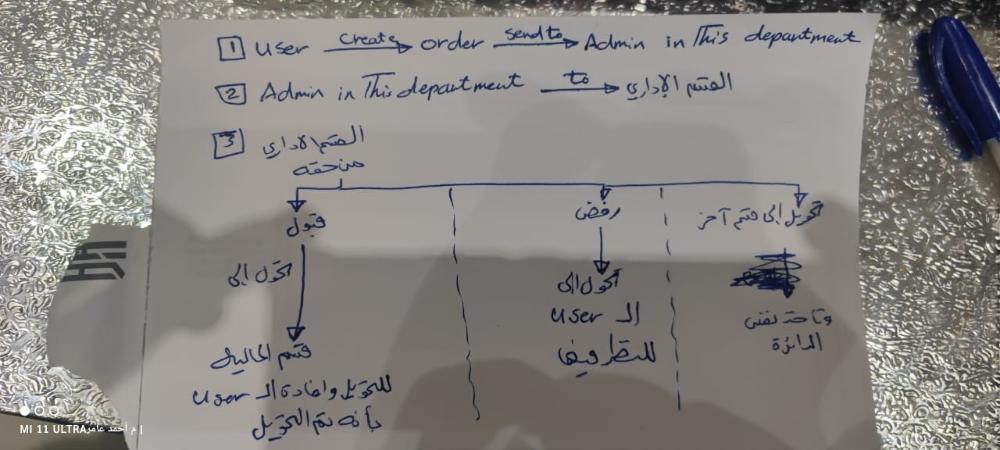 1 User create → order send to → Admin in This department
2 Admin in This department to → القسم الإداري
3 القسم الاداري
من حقه
قبول
تحول الى
قسم المالية
للتحويل وافادة الـ user
بأنه تم التحويل
رفض
تحول الى
الـ user
للنظر فيها
تحويل إلى قسم آخر
وتاخذ نفس
الدائرة
MI 11 ULTRA | م أحمد عامر